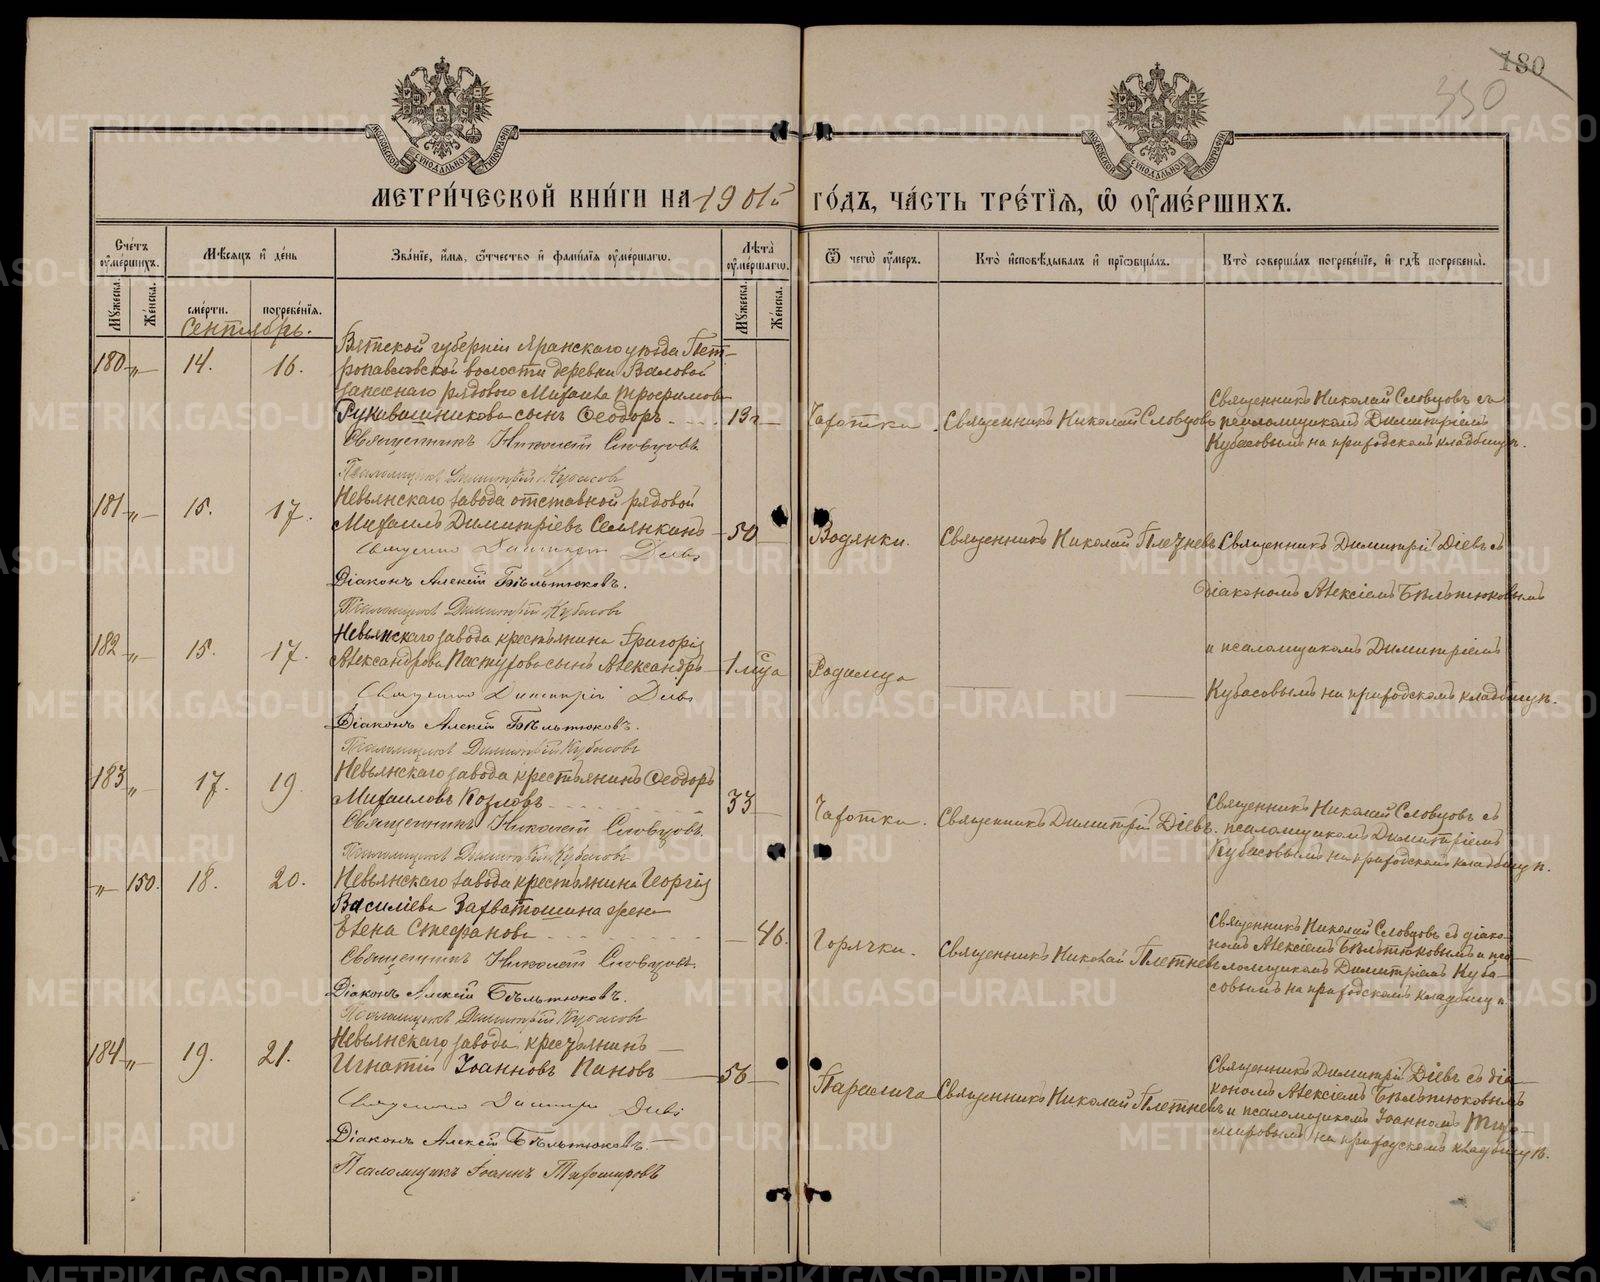 180
330
МОСКОВСКОЙ СѴНОДАЛЬНОЙ ТИПОГРАФІИ
МОСКОВСКОЙ СѴНОДАЛЬНОЙ ТИПОГРАФІИ
МЕТРИ́ЧЕСКОЙ КНИ́ГИ НА 1901й ГО́ДЪ, ЧА́СТЬ ТРЕ́ТІѦ, Ѡ҆ ОУ҆МЕ́РШИХЪ.
Сче́тъ оу҆ме́ршихъ.
Му́жеска.
Же́нска.
Мѣ́сяцъ и҆ де́нь
сме́рти.
погребе́нїѧ.
Зва́нїе, и҆́мѧ, ѻ҆́тчество и҆ фами́лїѧ оу҆ме́ршагѡ.
Лѣ́та оу҆ме́ршагѡ.
Му́жеска.
Же́нска.
Ѿ чегѡ̀ оу҆́меръ.
Кто̀ и҆сповѣ́дывалъ и҆ прїѡбща́лъ.
Кто̀ соверша́лъ погребе́нїе, и҆ гдѣ̀ погребены̀.
Сентябрь.
180 „ 14. 16.
Вятской губерніи Яранскаго уѣзда Пет-
ропавловской волости деревни Валовой
запаснаго рядового Михаила Трофимова
Рукавишникова сынъ Ѳеодоръ 19л
Священникъ Николай Словцовъ
Псаломщикъ Димитрій Кубасовъ
Чахотки. Священникъ Николай Словцовъ
Священникъ Николай Словцовъ съ
псаломщикомъ Димитріемъ
Кубасовымъ на приходскомъ кладбищѣ.
181 „ 15. 17.
Невьянскаго завода отставной рядовой
Михаилъ Димитріевъ Селянкинъ 50
Священникъ Димитрій Діевъ
Діаконъ Алексій Бѣльтюковъ.
Псаломщикъ Димитрій Кубасовъ
Водянки. Священникъ Николай Плетневъ
Священникъ Димитрій Діевъ съ
діакономъ Алексіемъ Бѣльтюковымъ
и псаломщикомъ Димитріемъ
Кубасовымъ на приходскомъ кладбищѣ.
182 „ 15. 17.
Невьянскаго завода крестьянина Григорія
Александрова Пастухова сынъ Александръ 1 мѣсца
Священникъ Димитрій Діевъ
Діаконъ Алексій Бѣльтюковъ.
Псаломщикъ Димитрій Кубасовъ
Родимца
183 „ 17. 19.
Невьянскаго завода крестьянинъ Ѳеодоръ
Михаиловъ Козловъ 33
Священникъ Николай Словцовъ.
Псаломщикъ Димитрій Кубасовъ
Чахотки. Священникъ Димитрій Діевъ.
Священникъ Николай Словцовъ съ
псаломщикомъ Димитріемъ
Кубасовымъ на приходскомъ кладбищѣ.
„ 150. 18. 20.
Невьянскаго завода крестьянина Георгія
Василіева Захватошина жена
Елена Стефанова 46.
Священникъ Николай Словцовъ.
Діаконъ Алексій Бѣльтюковъ.
Псаломщикъ Димитрій Кубасовъ
Горячки. Священникъ Николай Плетневъ
Священникъ Николай Словцовъ съ діако-
номъ Алексіемъ Бѣльтюковымъ и пса-
ломщикомъ Димитріемъ Куба-
совымъ на приходскомъ кладбищѣ.
184 „ 19. 21.
Невьянскаго завода крестьянинъ
Игнатій Іоанновъ Пановъ 56
Священникъ Димитрій Діевъ
Діаконъ Алексій Бѣльтюковъ.
Псаломщикъ Іоаннъ Тихомировъ
Паралича Священникъ Николай Плетневъ
Священникъ Димитрій Діевъ съ діа-
кономъ Алексіемъ Бѣльтюковымъ
и псаломщикомъ Іоанномъ Тихо-
мировымъ на приходскомъ кладбищѣ.
METRIKI.GASO-URAL.RU